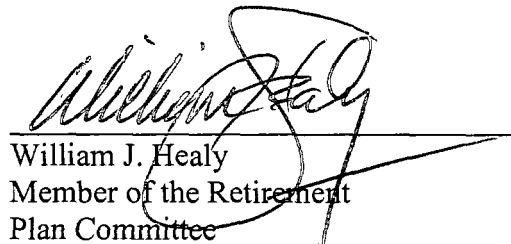 William J. Healy
William J. Healy
Member of the Retirement
Plan Committee